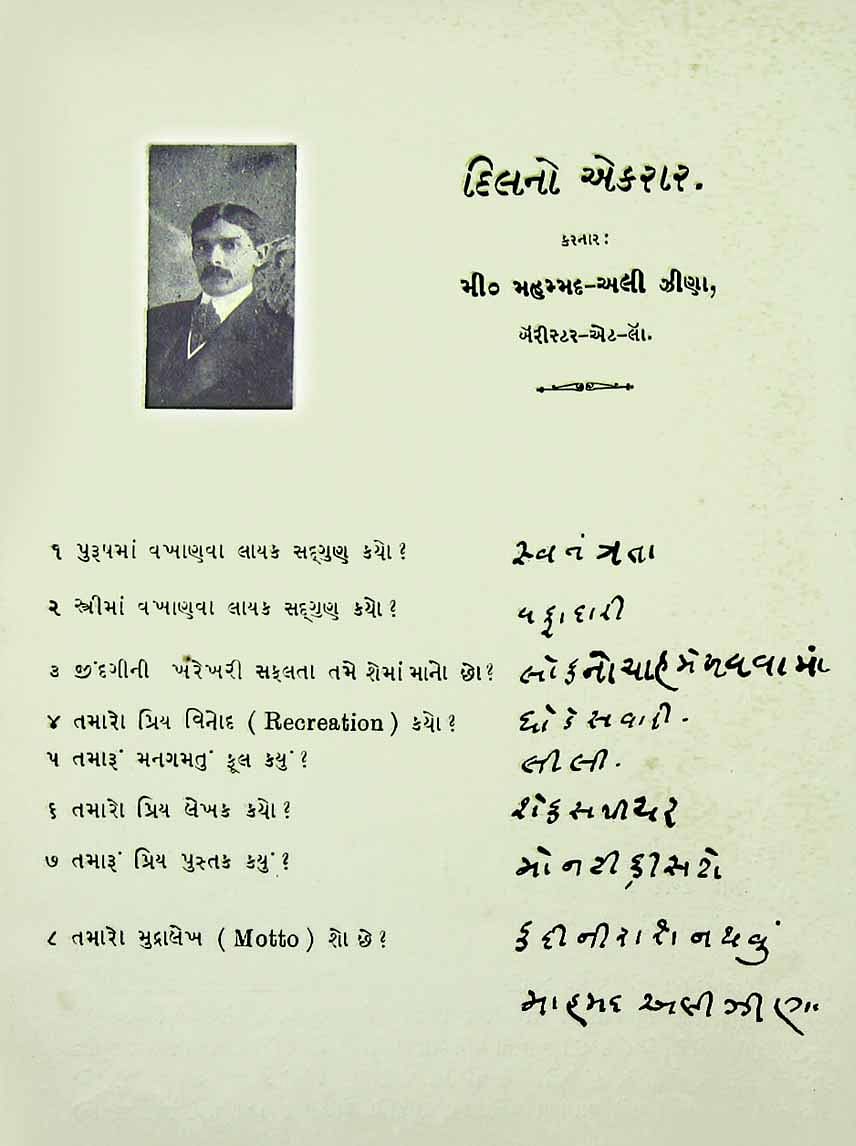 દિલનો એકરાર.
કરનાર:
મી૦ મહમ્મદ-અલી ઝીણા,
બૅરીસ્ટર-એટ-લૅા.
૧ પુરૂષમાં વખાણવા લાયક સદ્ગુણ કયો? સ્વતંત્રતા
૨ સ્ત્રીમાં વખાણવા લાયક સદ્ગુણ કયો? વફાદારી
૩ જીંદગીની ખરેખરી સફલતા તમે શેમાં માનો છો? લોકનો ચાહ મેળવવામાં
૪ તમારો પ્રિય વિનોદ ( Recreation ) કયો? ઘોડેસવારી.
૫ તમારૂં મનગમતું ફૂલ કયું? લીલી.
૬ તમારો પ્રિય લેખક કયો? શેકસપીયર
૭ તમારૂં પ્રિય પુસ્તક કયું? મોનટીક્રીસટો
૮ તમારો મુદ્રાલેખ ( Motto ) શો છે? કદી નીરાશ ન થવું
માહમદ અલી ઝીણા